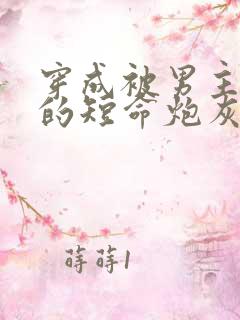 穿成被男主
的短命炮灰
蒔蒔1